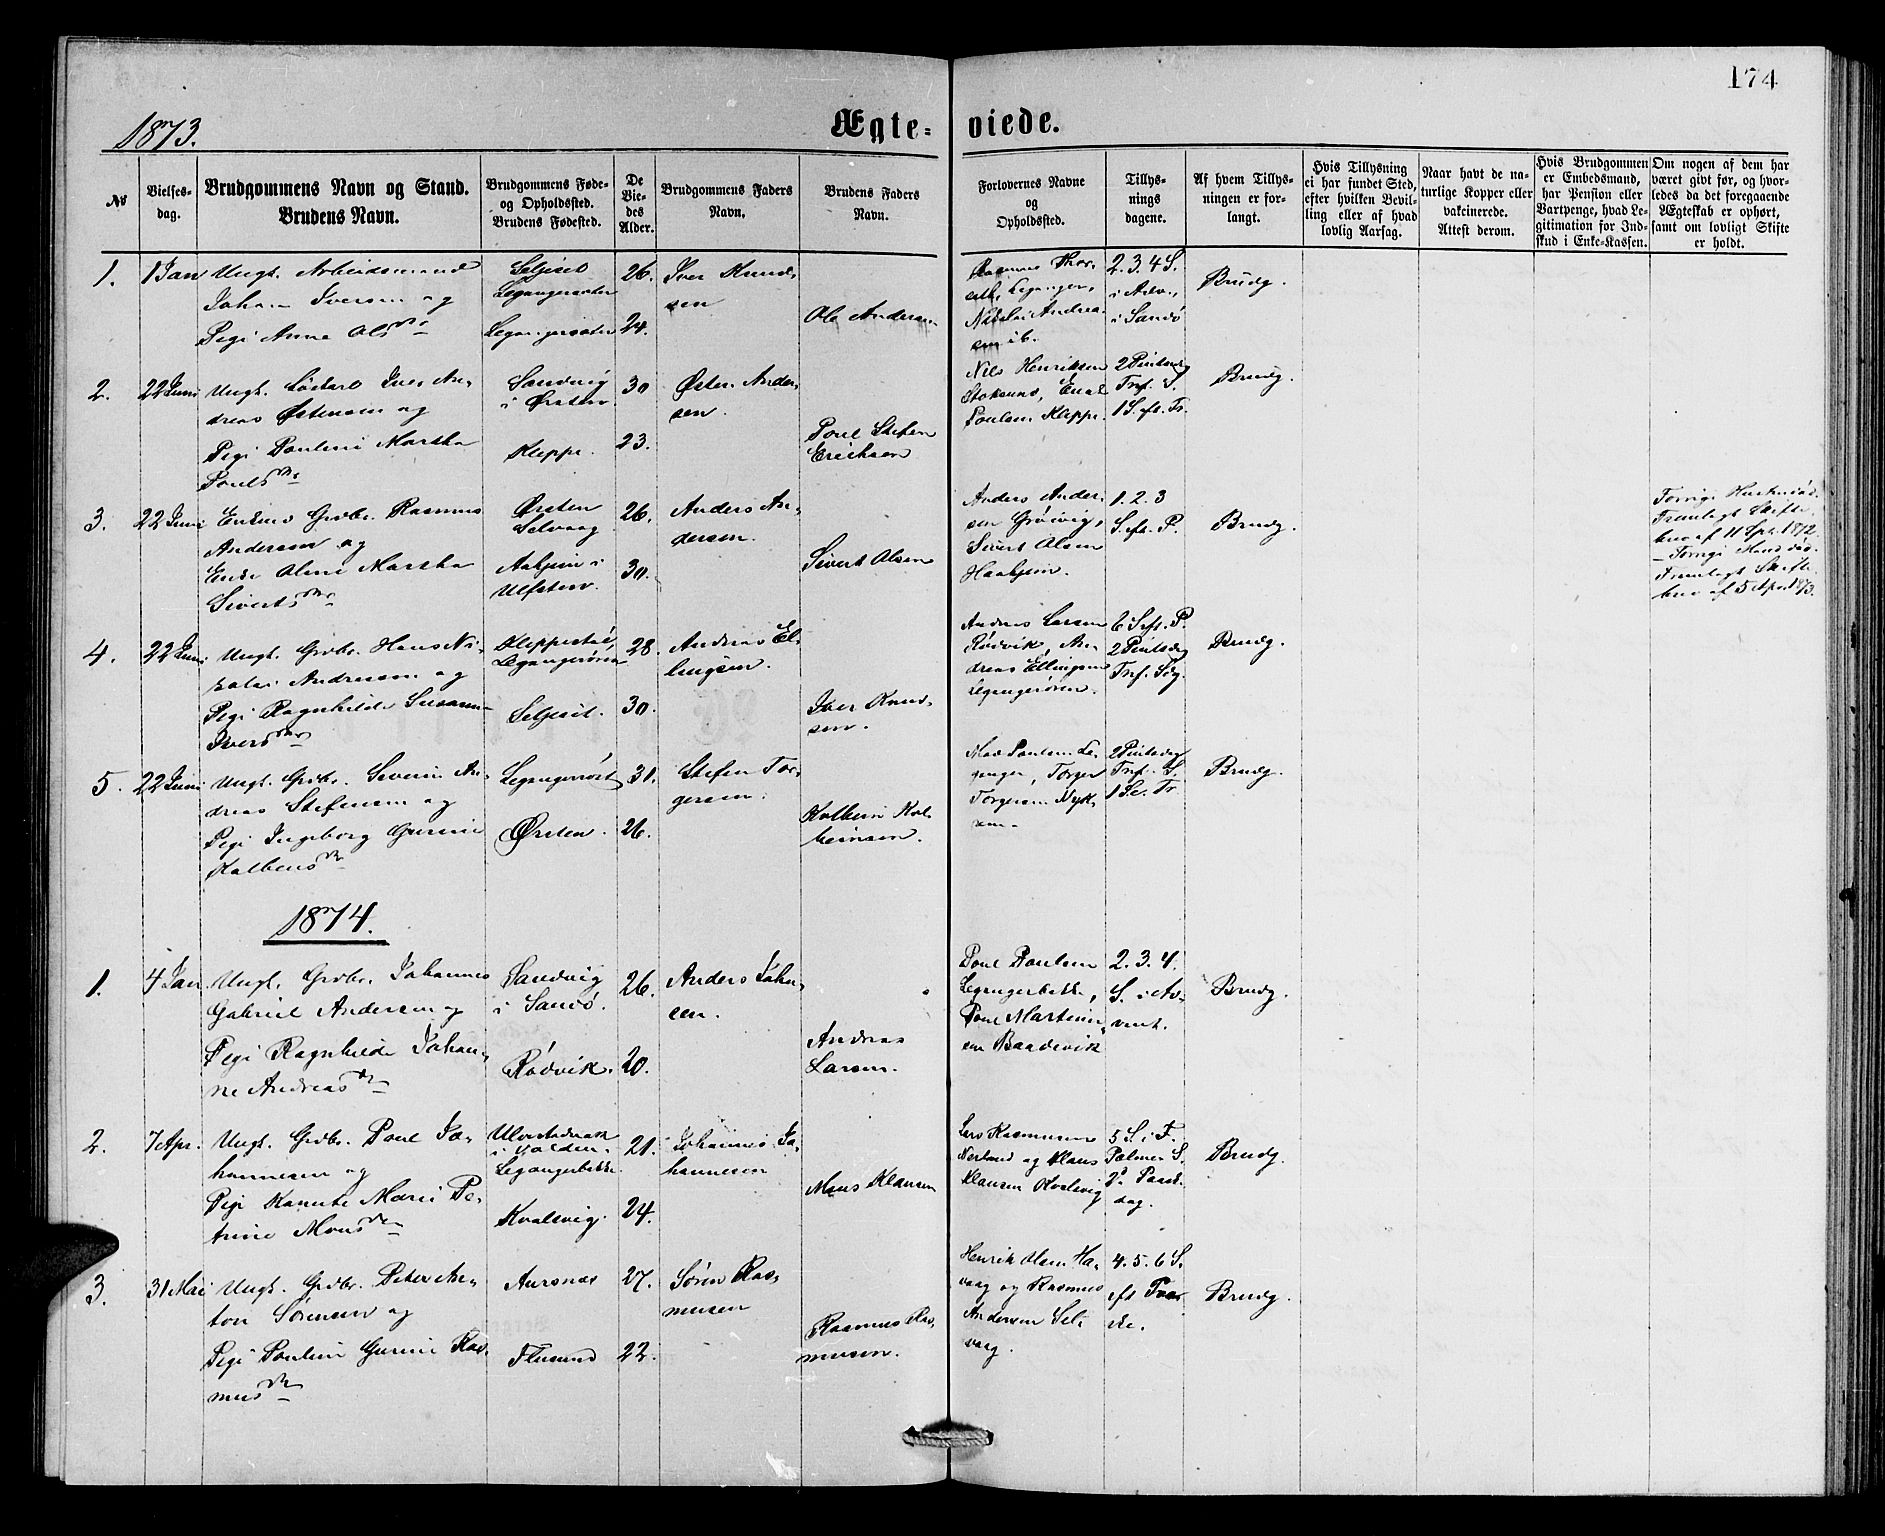 174
1873.
Ægte-viede.
No
Vielses-
dag.
Brudgommens Navn og Stand.
Brudens Navn.
Brudgommens Føde-
og Opholdssted.
Brudens Fødested.
De
Vie-
des
Alder.
Brudgommens Faders
Navn.
Brudens Faders
Navn.
Forlovernes Navne
og
Opholdssted.
Tillys-
nings
dagene.
Af hvem Tillys-
ningen er for-
langt.
Hvis Tillysning
ei har fundet Sted,
efter hvilken Bevil-
ling eller af hvad
lovlig Aarsag.
Naar havt de na-
turlige Kopper eller
vakcinerede.
Attest derom.
Hvis Brudgommen
er Embedsmand,
har Pension eller
Vartpenge, hvad Le-
gitimation for Ind-
skud i Enke-Kassen.
Om nogen af dem har
været givt før, og hvor-
ledes da det foregaaende
Ægteskab er ophørt,
samt om lovligt Skifte
er holdt.
1.
1 Jan
Ungk. Arbeidsmand
Johan Iversen og
Pige Anne Olsdtr
26.
Legangersæter
24.
Iver Knud-
sen
Ole Andersen
Rasmus
Leganger,
Nikolai Andrea-
sen ib.
2. 3. 4 S.
i Adv.
i Sandø
Brudg.
2.
22 Juni
Ungk. Iver An-
dreas Østensen og
Pige Pauline Martha
Poulsdtr
Sandvig
i Ørsten
Kleppe.
30
23.
Østen Ander-
sen.
Poul Stefen
Ericksen
Nils Henriksen
Stoksund,
Poulsen Kleppe.
2 Pintsedag
Tref. S.
1 S. eft. Tr.
Brudg.
3.
22 Juni
Enkem. Grdbr. Rasmus
Andersen og
Enke Oline Martha
Sivertsdtr
Ørsten
Selvaag
i
Ulfsten.
26.
30.
Anders An-
dersen.
Sivert Olsen
Anders Ander-
sen
Sivert Olsen
1. 2. 3
S. eft. P.
Brudg.
Forrige
Fremlagt Skifte-
brev af 11 Sept. 1872.
- Forrige
Fremlagt Skifte-
brev af 5 Apr. 1873.
4.
22 Juni
Ungk. Grdbr. Hans Ni-
kolai Andreasen og
Pige Ragnhilde Susanne
Iversdtr
Legangerøren
28.
30.
Andreas El-
lingsen.
Iver Knud-
sen.
Andreas Larsen
Rødvik, An-
dreas Ellingsen
Legangerøren.
6 S. eft. P.
2 Pintsedag
Tref. Sdg.
Brudg.
5.
22 Juni
Ungk. Grdbr. Severin An-
dreas Stefensen og
Pige Ingeborg Gurine
Kolbensdtr
Ørsten.
31.
26.
Stefen Tor-
gersen.
Kolbein Kol-
beinsen.
Poulsen Le-
ganger, Torger
Torgersen
2 Pintsedag
Tref. S.
1 S. e. Tr.
Brudg.
1874.
1.
4 Jan
Ungk. Grdbr. Johannes
Gabriel Andersen og
Pige Ragnhilde Johan-
ne Andreasdtr
Sandvig
i Sandø.
Rødvik.
26.
20.
Anders Johan-
sen.
Andreas
Larsen.
Poul Poulsen
Legangerbakke,
Poul Martin-
sen Baadsvik
2. 3. 4.
S. i Ad-
vent.
Brudg.
2.
7 Apr.
Ungk. Grdbr. Poul Jo-
hannesen og
Pige Kanute Marie Pe-
trine Monsdtr
i Volden.
Legangerbakke.
Kvalsvig.
21.
24.
Johannes Jo-
hannesen
Mons Klausen
Lars Rasmussen
Nerland og Klaus
Klausen Kvalsvig
5 S. i F.
Palme S.
2d Paask-
dag.
Brudg.
3.
31 Mai
Ungk. Grdbr. Peter An-
ton Sørensen og
Pige Pauline Gurine Ras-
musdtr
Aursnes
Flusund
27.
22.
Søren Ras-
musen
Rasmus Ras-
musen.
Henrik Olsen Ha-
vaag og Rasmus
Andersen Sel-
vaag.
4. 5. 6 S.
eft. Paa-
ske.
Brudg.